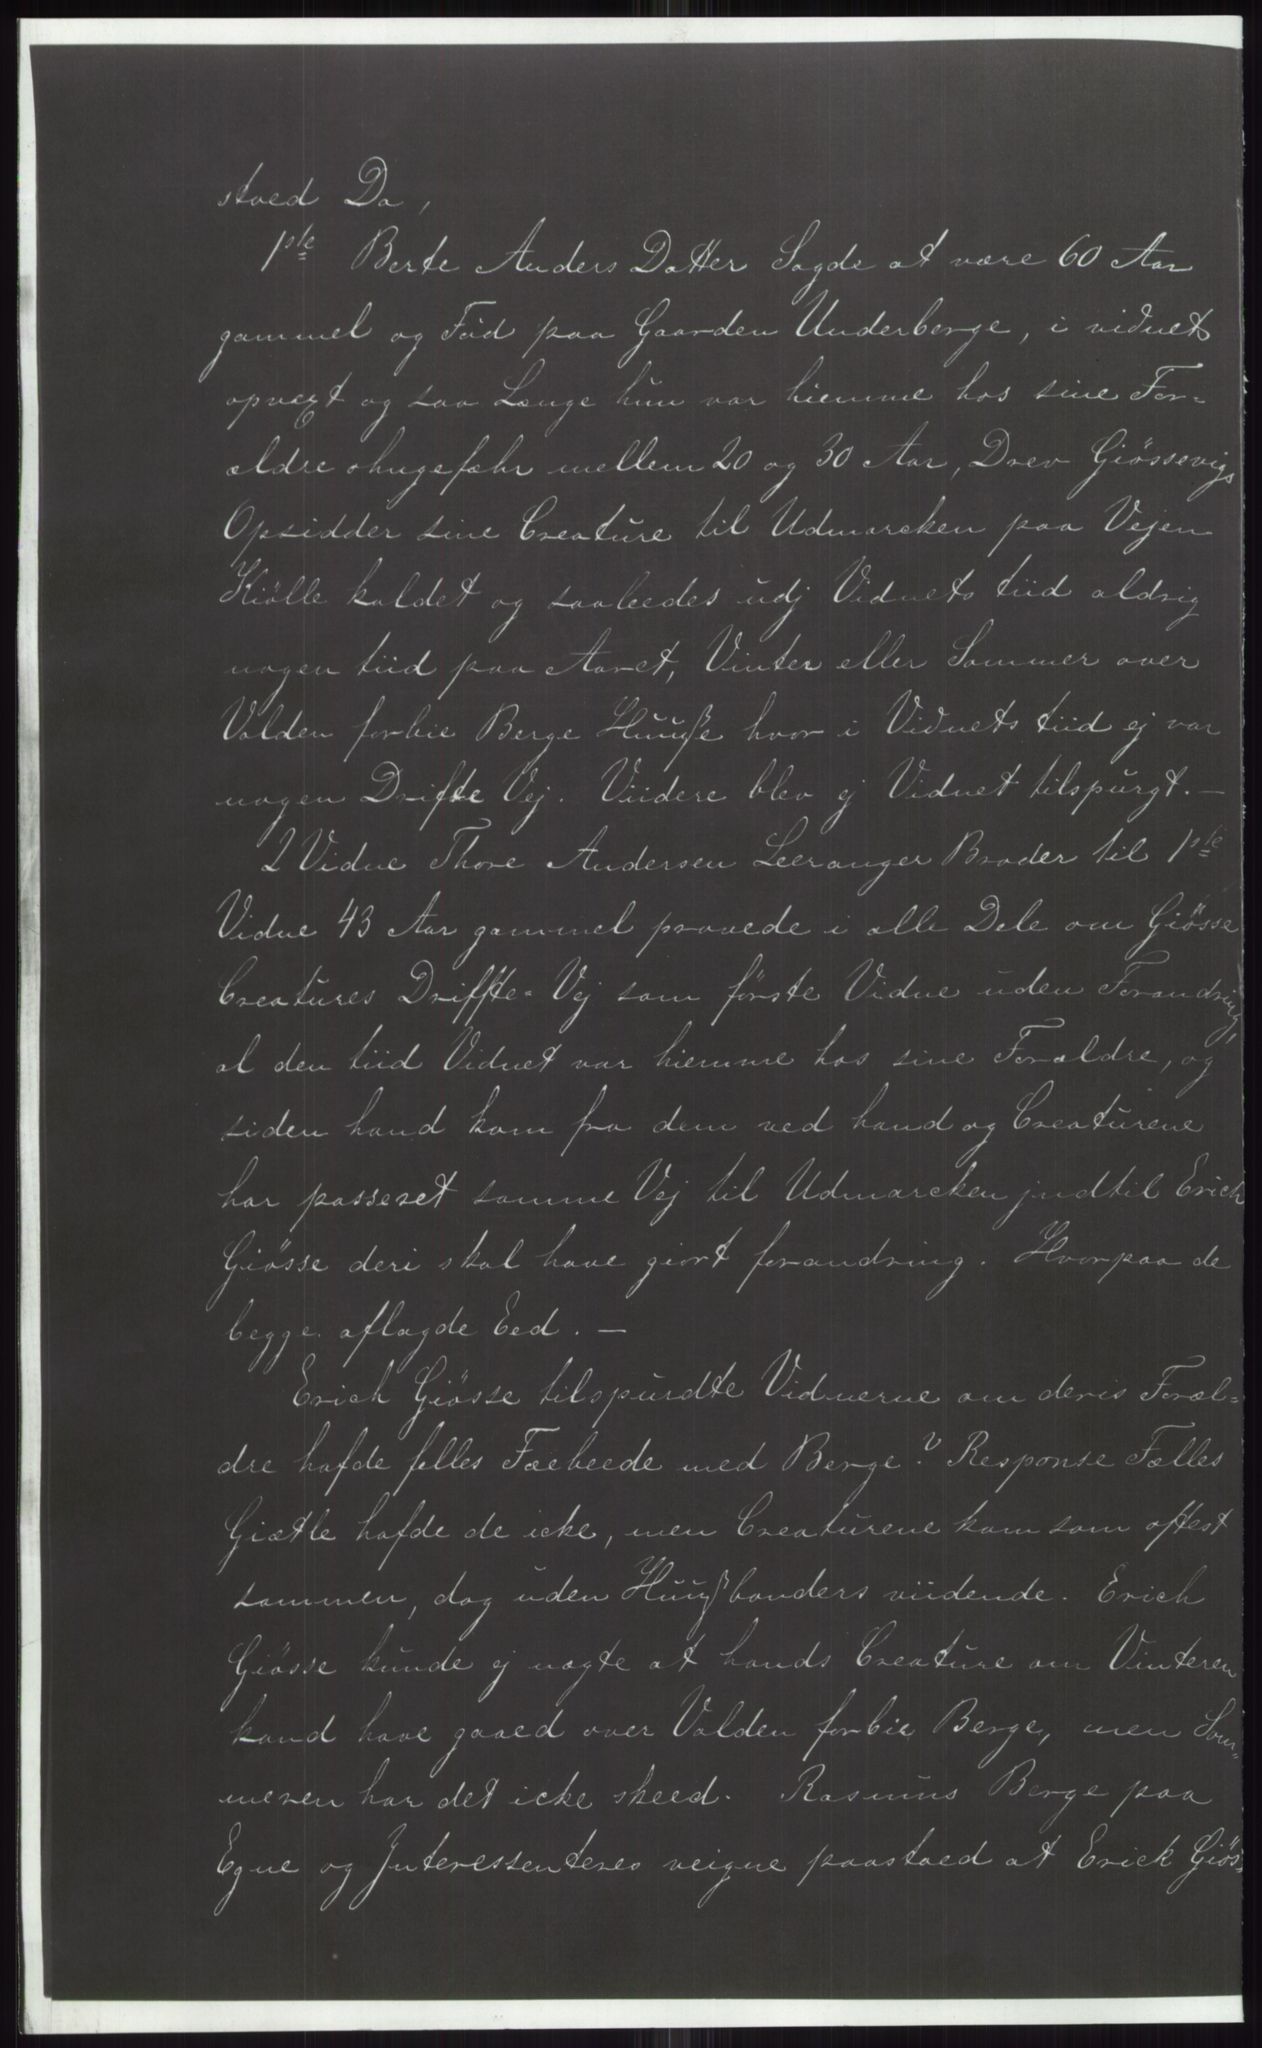 stoed Da,
1ste Berte Anders Datter Sagde at være 60 Aar
gammel og Föd paa Gaarden Underberge, i vidnets
opvext og saa Længe hun var hiemme hos sine For-
ældre ohngefæhr mellem 20 og 30 Aar, Drev Giössevigs
Opsidder sine Creature til Udmarcken paa Vejen
Kiölle kaldet og saaleedes udj Vidnets tiid aldrig
nogen tiid paa Aaret, Vinter eller Sommer over
Volden forbie Berge Huuße hvor i Vidnets tiid ej var
nogen Drifte Vej. Viidere blev ej Vidnet tilspurgt. —
2 Vidne Thore Andersen Leeranger Broder til 1ste
Vidne 43 Aar gammel provede i alle Dele om Giösse
Creatures Driffte-Vej som förste Vidne uden Forandring,
al den tiid Vidnet var hiemme hos sine Forældre, og
siden hand kom fra dem ved hand og Creaturene
har passeret samme Vej til Udmarcken jndtil Erich
Giösse deri skal have giort forandring. Hvorpaa de
begge aflagde Eed. —
Erich Giösse tilspurdte Vidnerne om deris Foræl-
dre hafde felles Fæebeede med Berge? Response Fælles
Giætle hafde de icke, men Creaturene kom som oftest
sammen, dog uden Huußbonders viidende. Erich
Giösse kunde ej nægte at hands Creature om Vinteren
kand have gaaed over Volden forbie Berge, men Som-
meren har det icke skeed. Rasmus Berge paa
Egne og Interessenteres veigne paastoed at Erick Giös-